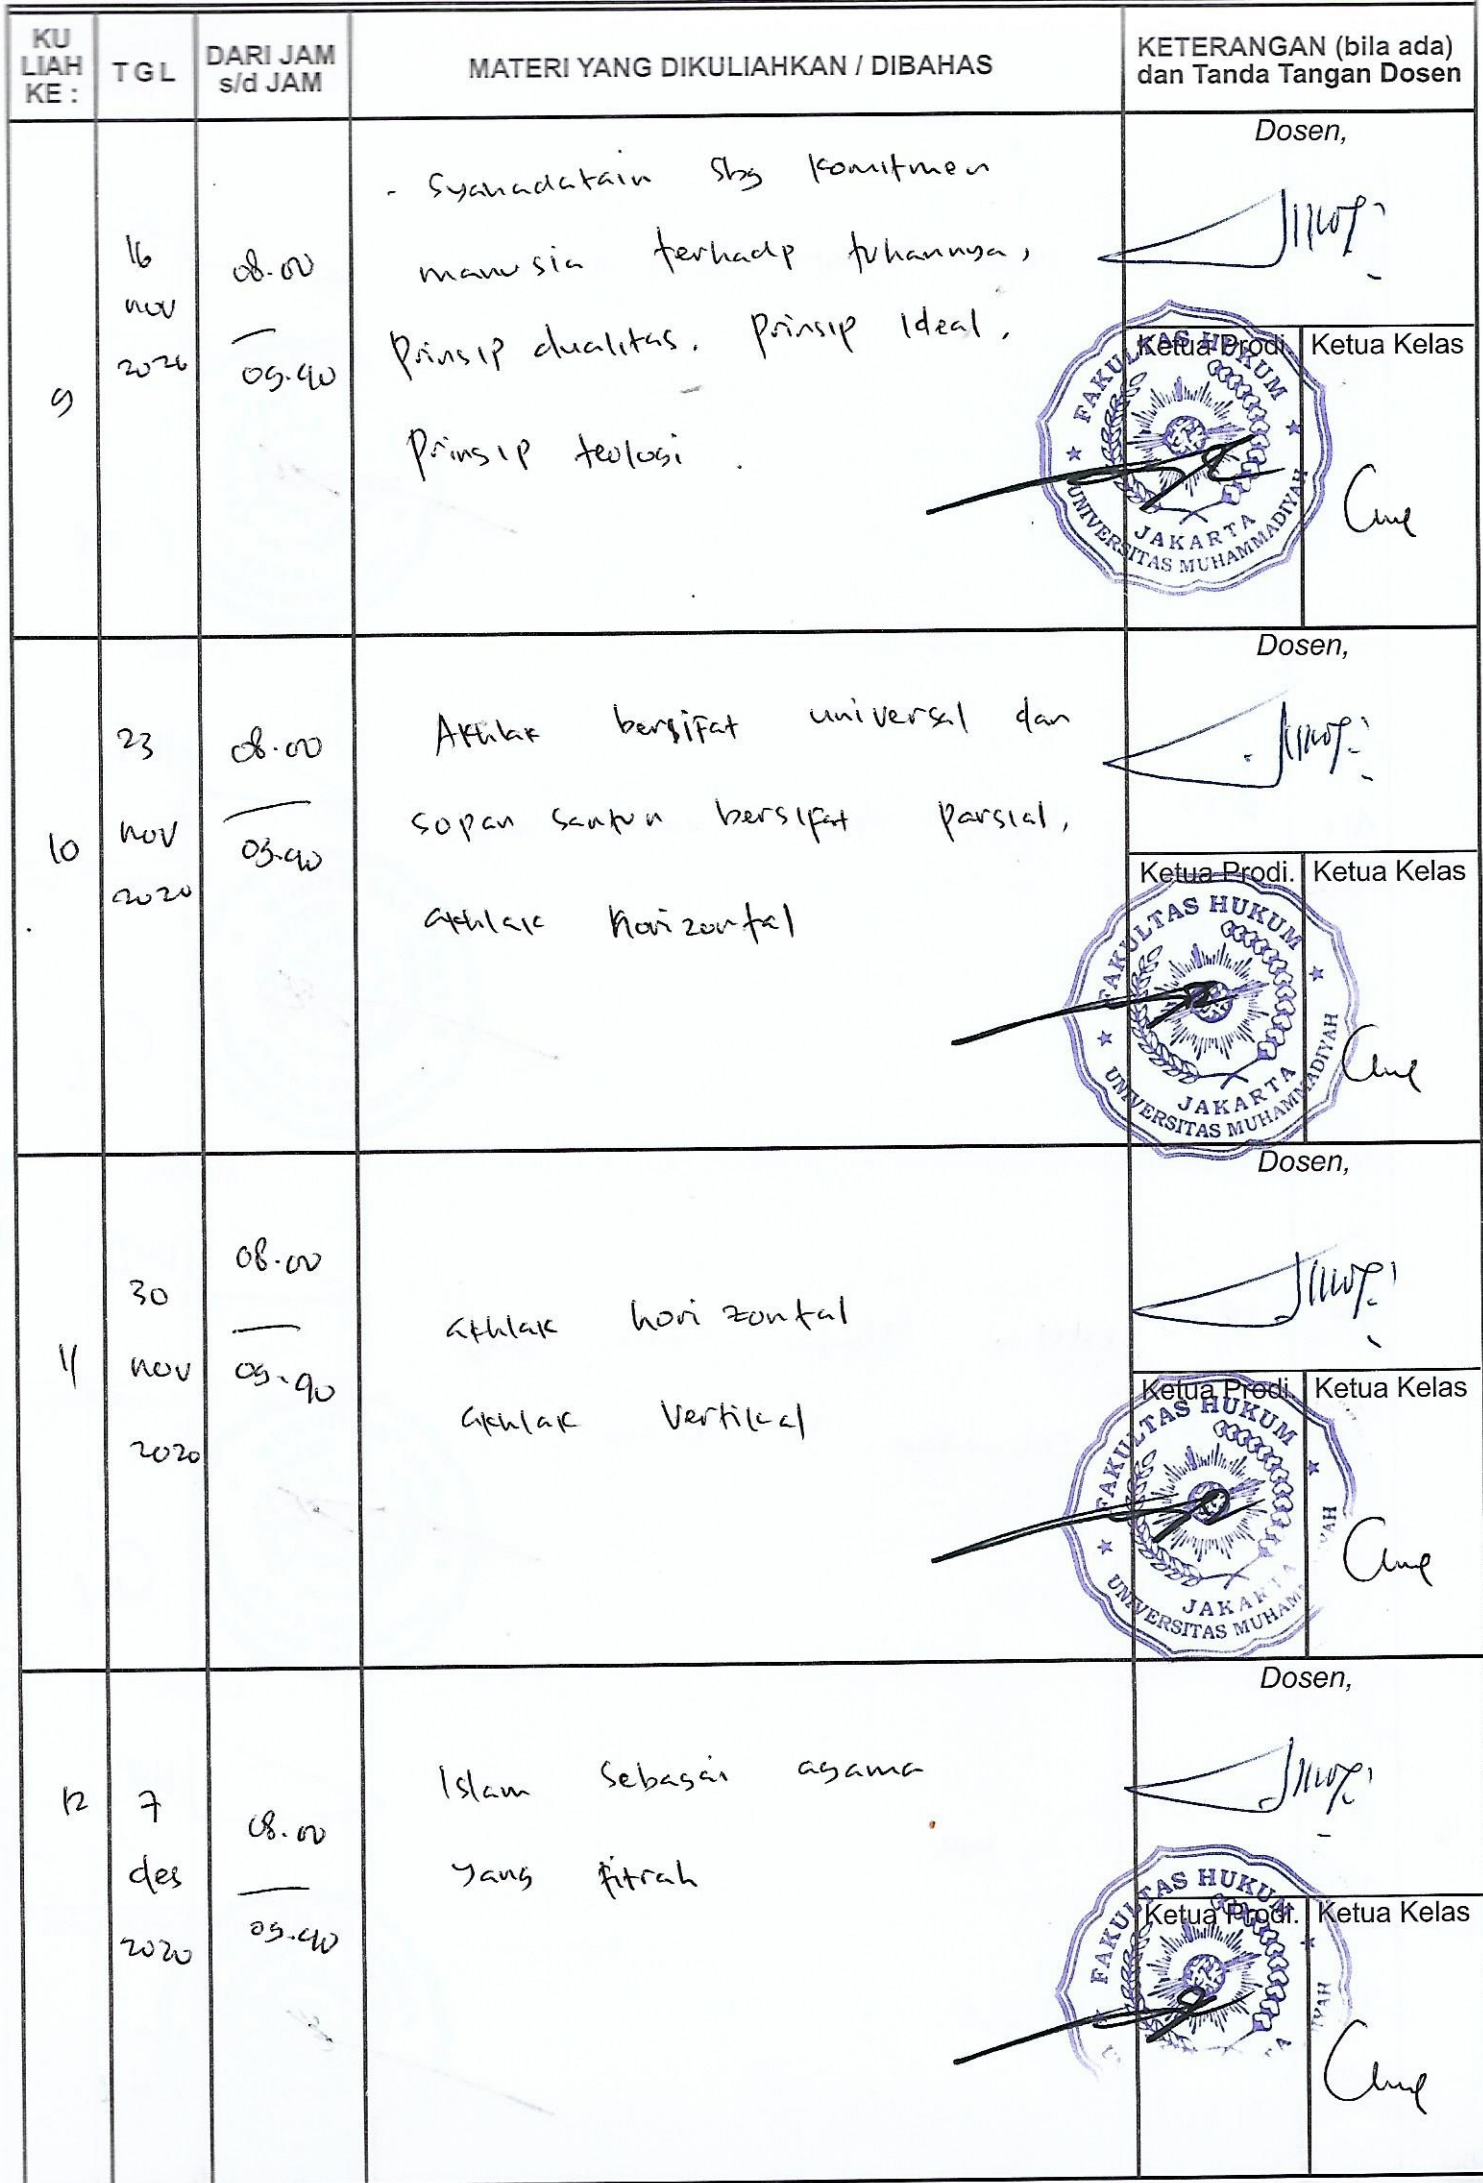 KU LIAH KE :
TGL
DARI JAM s/d JAM
MATERI YANG DIKULIAHKAN / DIBAHAS
KETERANGAN (bila ada) dan Tanda Tangan Dosen
9
16 nov 2020
08.00
09.40
- Syahadatain sbg komitmen
manusia terhadp tuhannya,
Prinsip dualitas. Prinsip Ideal.
Prinsip teologi.
Dosen,
Ketua Prodi.
Ketua Kelas
FAKULTAS HUKUM
UNIVERSITAS MUHAMMADIYAH
JAKARTA
10
23 nov 2020
08.00
09.40
Akhlak bersifat universal dan
sopan santun bersifat parsial,
akhlak horizontal
Dosen,
Ketua Prodi.
Ketua Kelas
FAKULTAS HUKUM
UNIVERSITAS MUHAMMADIYAH
JAKARTA
11
30 nov 2020
08.00
09.40
akhlak horizontal
akhlak Vertikal
Dosen,
Ketua Prodi.
Ketua Kelas
FAKULTAS HUKUM
UNIVERSITAS MUHAM
YAH
JAKARTA
12
7 des 2020
08.00
09.40
Islam sebagai agama
yang fitrah
Dosen,
Ketua Prodi.
Ketua Kelas
FAKULTAS HUKUM